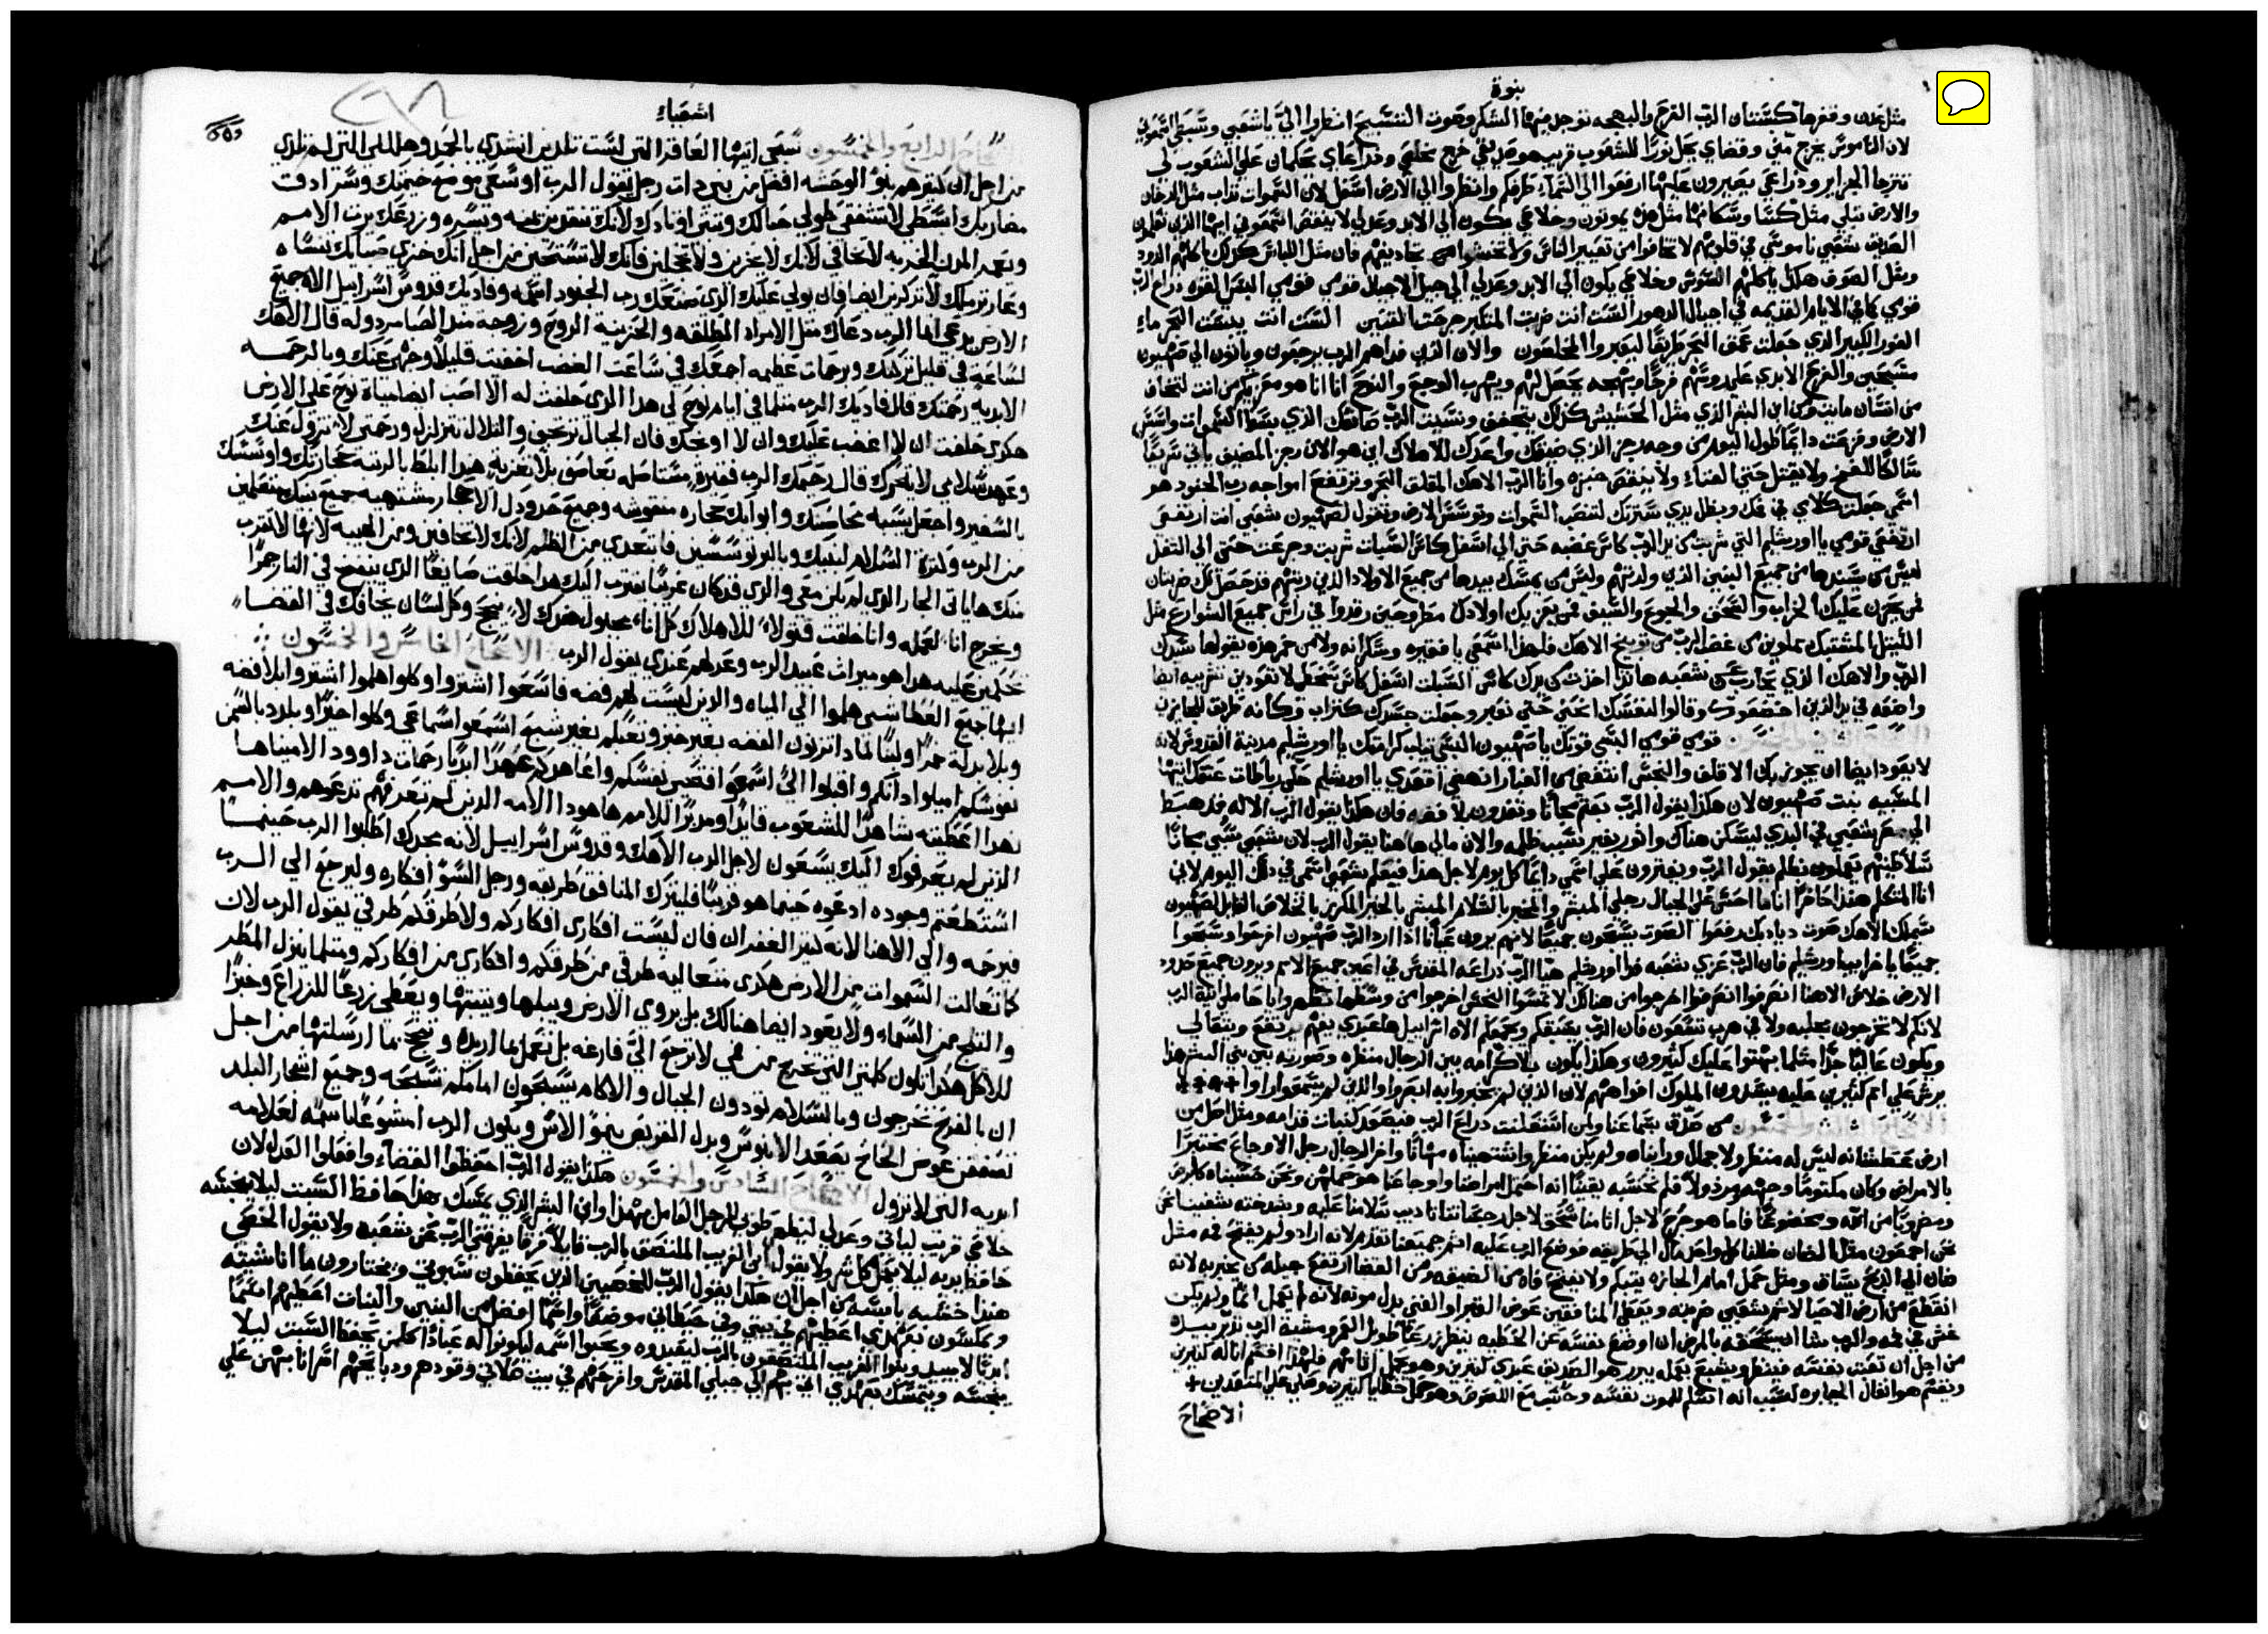 نبوة
مثل عدن وقفرها كبستان الرب الفرح والبهجه توجد فيها الشكر وصوت التسبيح انظروا الي يا شعبي وسبطي اسمعوني
لان الناموس يخرج مني وقضاي يحل نورا للشعوب قريب هو عدلي خرج مخلصي وذراعاي يحكمان علي الشعوب لي
تترجا الجزاير وذراعي يصبرون عليها ارفعوا الي السماء طرفكم وانظروا الي الارض اسفل لان السموات تداب مثل الدخان
والارض تبلي مثل كسا وسكانها مثل هذه يموتون وخلاصي يكون الي الابد وعدلي لا ينقص اسمعوني ايها الذين تعلمون
الصديق شعبي ناموسي في قلوبهم لا تخافوا من تعيير الناس ولا تخشوا من تجاديفهم فان مثل اللباس كذلك ياكلهم الدود
ومثل الصوف هكذا ياكلهم السوس وخلاصي يكون الي الابد وعدلي الي جيل الاجيال قومي قومي البس القوه ذراع الرب
قومي كما في الايام القديمه في اجيال الدهور الست انت ضربت المتكبر جرحت التنين الست انت يبست البحر ماء
الغور الكبير الذي جعلت عمق البحر طريقا ليعبروا المخلصون والان الذي فداهم الرب يرجعون وياتون الي صهيون
مسبحين والفرح الابدي علي روسهم فرحا وبهجه يجعل لهم ويهرب الوجع والنوح انا انا هو معزيكم من انت لتخاف
من انسان مايت ومن ابن البشر الذي مثل الحشيش كذلك يتجفف ونسيت الرب صانعك الذي بسط السموات واسس
الارض وفزعت دايما طول اليوم من وجه رجز الذي ضيقك واعدك للاهلاك اين هو الان رجز المضيق ياتي سريعا
سالكا للفتح ولا يقتل حتي الفناء ولا ينقص خبزه وانا الرب الاهك المقلق البحر وترتفع امواجه رب الجنود هو
اسمي جعلت كلامي في فمك وبظل يدي سترتك لتنصب السموات وتوسس الارض وتقول لصهيون شعبي انت ارتفعي
ارتفعي قومي يا اورشليم التي شربت من يد الرب كاس غضبه حتي الي اسفل كاس السبات شربت وجرعت حتي الي الثفل
ليس من يسندها من جميع البنين الذي ولدتهم وليس من يمسك بيدها من جميع الاولاد الذي ربتهم
من يحزن عليك الخراب والسحق والجوع والسيف من يعزيك اولادك مطروحين رقدوا في راس جميع الشوارع مثل
من غضب الرب من توبيخ الاهك فلهذا اسمعي يا فقيره وسكرانه ولا من خمر هذه يقولها سيدك
الرب والاهك الذي يحارب عن شعبه هانذا اخذت من يدك كاس السبات اسفل كاس سخطي لا تعودين تشربيه ايضا
واضعه في يد الذين اخضعوك وقالوا لنفسك انحني حتي نعبر وجعلت جسدك كتراب وكانه طريق للعابرين
الاصحاح الثاني والخمسون قومي قومي البسي قوتك يا صهيون البسي ثياب كرامتك يا اورشليم مدينة القدوس لانه
لا يعود ايضا ان يجوز بك الاقلف والنجس انتفضي من الغبار انهضي اقعدي يا اورشليم حلي رباطات عنقك ايتها
المسبيه بنت صهيون لان هكذا يقول الرب بعتم مجانا وتفدون بلا فضه فان هكذا يقول الرب الاله قد هبط
الي مصر شعبي في البدي ليسكن هناك واتور بغير سبب ظلمه والان ما لي هاهنا يقول الرب لان شعبي سبي مجانا
سلاطينهم يعملون بظلم يقول الرب ويفترون علي اسمي دايما كل يوم لاجل هذا فيعلم شعبي اسمي في ذلك اليوم لاني
انا المتكلم هنذا حاضرا اناما احسن علي الجبال رجلي المبشر والمخبر بالسلام المبشر بالخير المكرز بالخلاص القايل لصهيون
سيملك الاهك صوت ديادبك رفعوا الصوت يسبحون جميعا لانهم يرون عيانا اذا رد الرب صهيون افرحوا وسبحوا
جميعا يا خرايب اورشليم فان الرب عزي شعبه فدا اورشليم هيا الرب ذراعه المقدس في اعين جميع الامم ويرون جميع حدود
الارض خلاص الاهنا انصرفوا انصرفوا اخرجوا من هنالك لا تمسوا النجس اخرجوا من وسطها تطهروا يا حاملي انية الرب
لانكم لا تخرجون بعجله ولا في هرب تنقضون فان الرب يسبقكم ويجمعكم الاه اسراييل ها عبدي يفهم يرتفع ويتعالي
ويكون عاليا جدا مثلما بهتوا عليك كثيرون وهكذا يكون بلا كرامه بين الرجال منظره وصورته بين بني البشر هذا
يرش علي امم كثيرين عليه يسدون الملوك افواههم لان الذين لم يخبروا به ابصروا والذين لم يسمعوا راوا
الاصحاح الثالث والخمسون من صدق بسماعنا ولمن استعلنت ذراع الرب فيصعد كنبات قدامه ومثل اصل من
ارض عطشانه ليس له منظر ولا جمال ورايناه ولم يكن منظر واشتهيناه مهانا واخر الرجال رجل الاوجاع مختبرا
بالامراض وكان مكتوما وجهه ومرذولا فلم نحسبه يقينا انه احتمل امراضنا واوجاعنا هو حملها ونحن حسبناه كابرص
ومضروبا من الله ومخضوعا فاما هو جرح لاجل اثامنا سحق لاجل رجساتنا تاديب سلامنا عليه وبشدخته شفينا نحن
نحن اجمعون مثل الضان ضللنا كل واحد مال الي طريقه فوضع الرب عليه اثم جميعنا تقدم لانه اراد ولم يفتح فمه مثل
ضان الي الذبح يساق ومثل حمل امام الجازره يتبكم ولا يفتح فاه من الضيقه ومن القضا ارتفع جيله من يخبر به لانه
انقطع من ارض الاحيا لاثم شعبي ضربته ويعطي المنافقين عوض القبر والغني بدل موته لانه لم يعمل اثما ولم يكن
غش في فمه والرب شا ان يسحقه بالمرض ان اوضع نفسه عن الخطيه ينظر زرعا طويل العمر ومشية الرب تدبر بيده
من اجل ان تعبت نفسه فينظر ويشبع بعمله يبرر هو الصديق عبدي كثيرين وهو يحمل اثامهم فلهذا اقسم انا له كثيرين
ويقسم هو انفال الجبابره لسبب انه اسلم للموت نفسه وحسب مع اللصوص وهو حمل خطايا كثيرين وصلي علي المتعدين
الاصحاح
اشعياء
الاصحاح الرابع والخمسون سبحي ايتها العاقر التي لست تلدين انشدي بالحمد وهللي التي لم تلدي
من اجل ان كثيرهم بنو الوحشه افضل من بني ذات رجل يقول الرب اوسعي موضع خيمتك وسرادقت
مضاربك ابسطي لا تشفقي طولي حبالك وثبتي اوتادك لانك تنفذين يمنه ويسره وزرعك يرث الامم
ويعمر المدن الخربه لا تخافي لانك لا تخزين ولا تخجلين فانك لا تستحين من اجل انك خزي صبايك تنساه
وعار ترملك لا تذكرين ايضا فان يولي عليك الذي صنعك رب الجنود اسمه وفاديك قدوس اسراييل الاه جميع
الارض يدعي انما الرب دعاك مثل الامراه المطلقه والحزينة الروح وزوجة منذ الصبا مرذوله قال الاهك
لساعة في قليل تركتك وبرحمات عظيمه اجمعك في ساعت الغضب اخفيت قليلا وجهي عنك وبالرحمه
الابديه رحمتك قال فاديك الرب مثلما في ايام نوح لي هذا الذي حلفت له الا اصب ايضا مياة نوح علي الارض
هكذي حلفت ان لا اغضب عليك وان لا اوبخك فان الجبال ترتجف والتلال تتزلزل ورحمتي لا تزول عنك
وعهد سلامي لا يتحرك قال رحيمك الرب فقيرة مستاصله بعاصف بلا تعزيه هنذا ابلط بالرتبه حجارتك واوسسك
بالسفير واجعل يشبه محاسنك وابوابك حجاره منقوشه وجميع حدودك الاحجار مشتهيه جميع بنيك متعلمين
من الرب وكثرة السلام لبنيك وبالبر توسسين فابتعدي من الظلم لانك لا تخافين ومن الهيبه لانها لا تقترب
منك ها ياتي الجار الذي لم يكن معي والذي قد كان غريبا يقترب اليك هنذا خلقت صايغا الذي ينفخ في النار جمرا
ويخرج انا لعمله وانا خلقت قتولا للاهلاك كل انا مجبول ضدك لا ينجح وكل لسان يخافك في القضا
تحكمين عليه هذا هو ميراث عبيد الرب وعدلهم عندي يقول الرب الاصحاح الخامس والخمسون
ايها جميع العطاشي هلموا الي المياه والذين ليست لهم فضه فاسرعوا اشتروا وكلوا هلموا اشتروا بلا فضه
وبلا بدلة خمرا ولبنا لماذا تزنون الفضه بغير خبز وتعبكم بغير شبع اسمعوا سماعي وكلوا خيرا ويلذد بالسمن
نفوسكم اميلوا اذانكم واقبلوا الي اسمعوا فتحيي نفسكم واعاهدكم عهدا ابديا رحمات داوود الامينا ها
هذا اعطيته شاهدا للشعوب قايدا ومدبرا للامم ها هوذا الامه الذين لم تعرفهم تدعوهم والامم
الذين لم يعرفوك اليك يسعون لاجل الرب الاهك وقدوس اسراييل لانه مجدك اطلبوا الرب حينما
استطعتم وجوده ادعوه حينما هو قريبا فليترك المنافق طريقه ورجل السوء افكاره وليرجع الي الرب
فيرحمه والي الاهنا لانه كثير الغفران فان ليست افكاري افكاركم ولا طرقكم طرقي يقول الرب لان
كما تعالت السموات من الارض هكذي متعاليه طرقي من طرقكم وافكاري من افكاركم ومثلما ينزل المطر
والثلج من السماء ولا يعود ايضا هنالك بل يروي الارض ويبلها وينبتها ويعطي زرعا للزراع وخبزا
للاكل هكذا تكون كلمتي التي تخرج من فمي لا ترجع الي فارغه بل تعمل بما اريده وتنجح بما ارسلتها من اجل
ان بالفرح تخرجون وبالسلام تودون الجبال والاكام يسبحون امامكم تسبحه وجميع اشجار البلد
تصفق عوض الحاج يصعد الابنوس وبدل القريص ينموا الاس ويكون الرب اسمه لعلامه
ابديه التي لا تزول الاصحاح السادس والخمسون هكذا يقول الرب احفظوا القضاء وافعلوا العدل لان
خلاصي قريب لياتي وعدلي ليظهر طوبي للرجل الفاعل بهذا وابن البشر الذي يمسك بهذا حافظ السبت ليلا ينجسه
حافظ يديه ليلا يعمل كل شر ولا يقول ابن الغريب الملتصق بالرب قايلا فرقا يفرقني الرب عن شعبه ولا يقول الخصي
هنذا خشبه يابسه من اجل ان هكذا يقول الرب للخصيين الذين يحفظون سبوتي ويختارون ما انا شيته
ويمسكون بعهدي اعطيهم في بيتي وفي حيطاني موضعا واسما افضل من البنين والبنات اعطيهم اسما
ابديا لا يبيد وبنوا الغريب الملتصقون بالرب ليعبدوه ويحبوا اسمه ليكونوا له عبادا كلمن يحفظ السبت ليلا
ينجسه ويتمسك بعهدي اتي بهم الي جبلي المقدس وافرحهم في بيت صلاتي وقودهم وذبايحهم اقرانا بهن علي